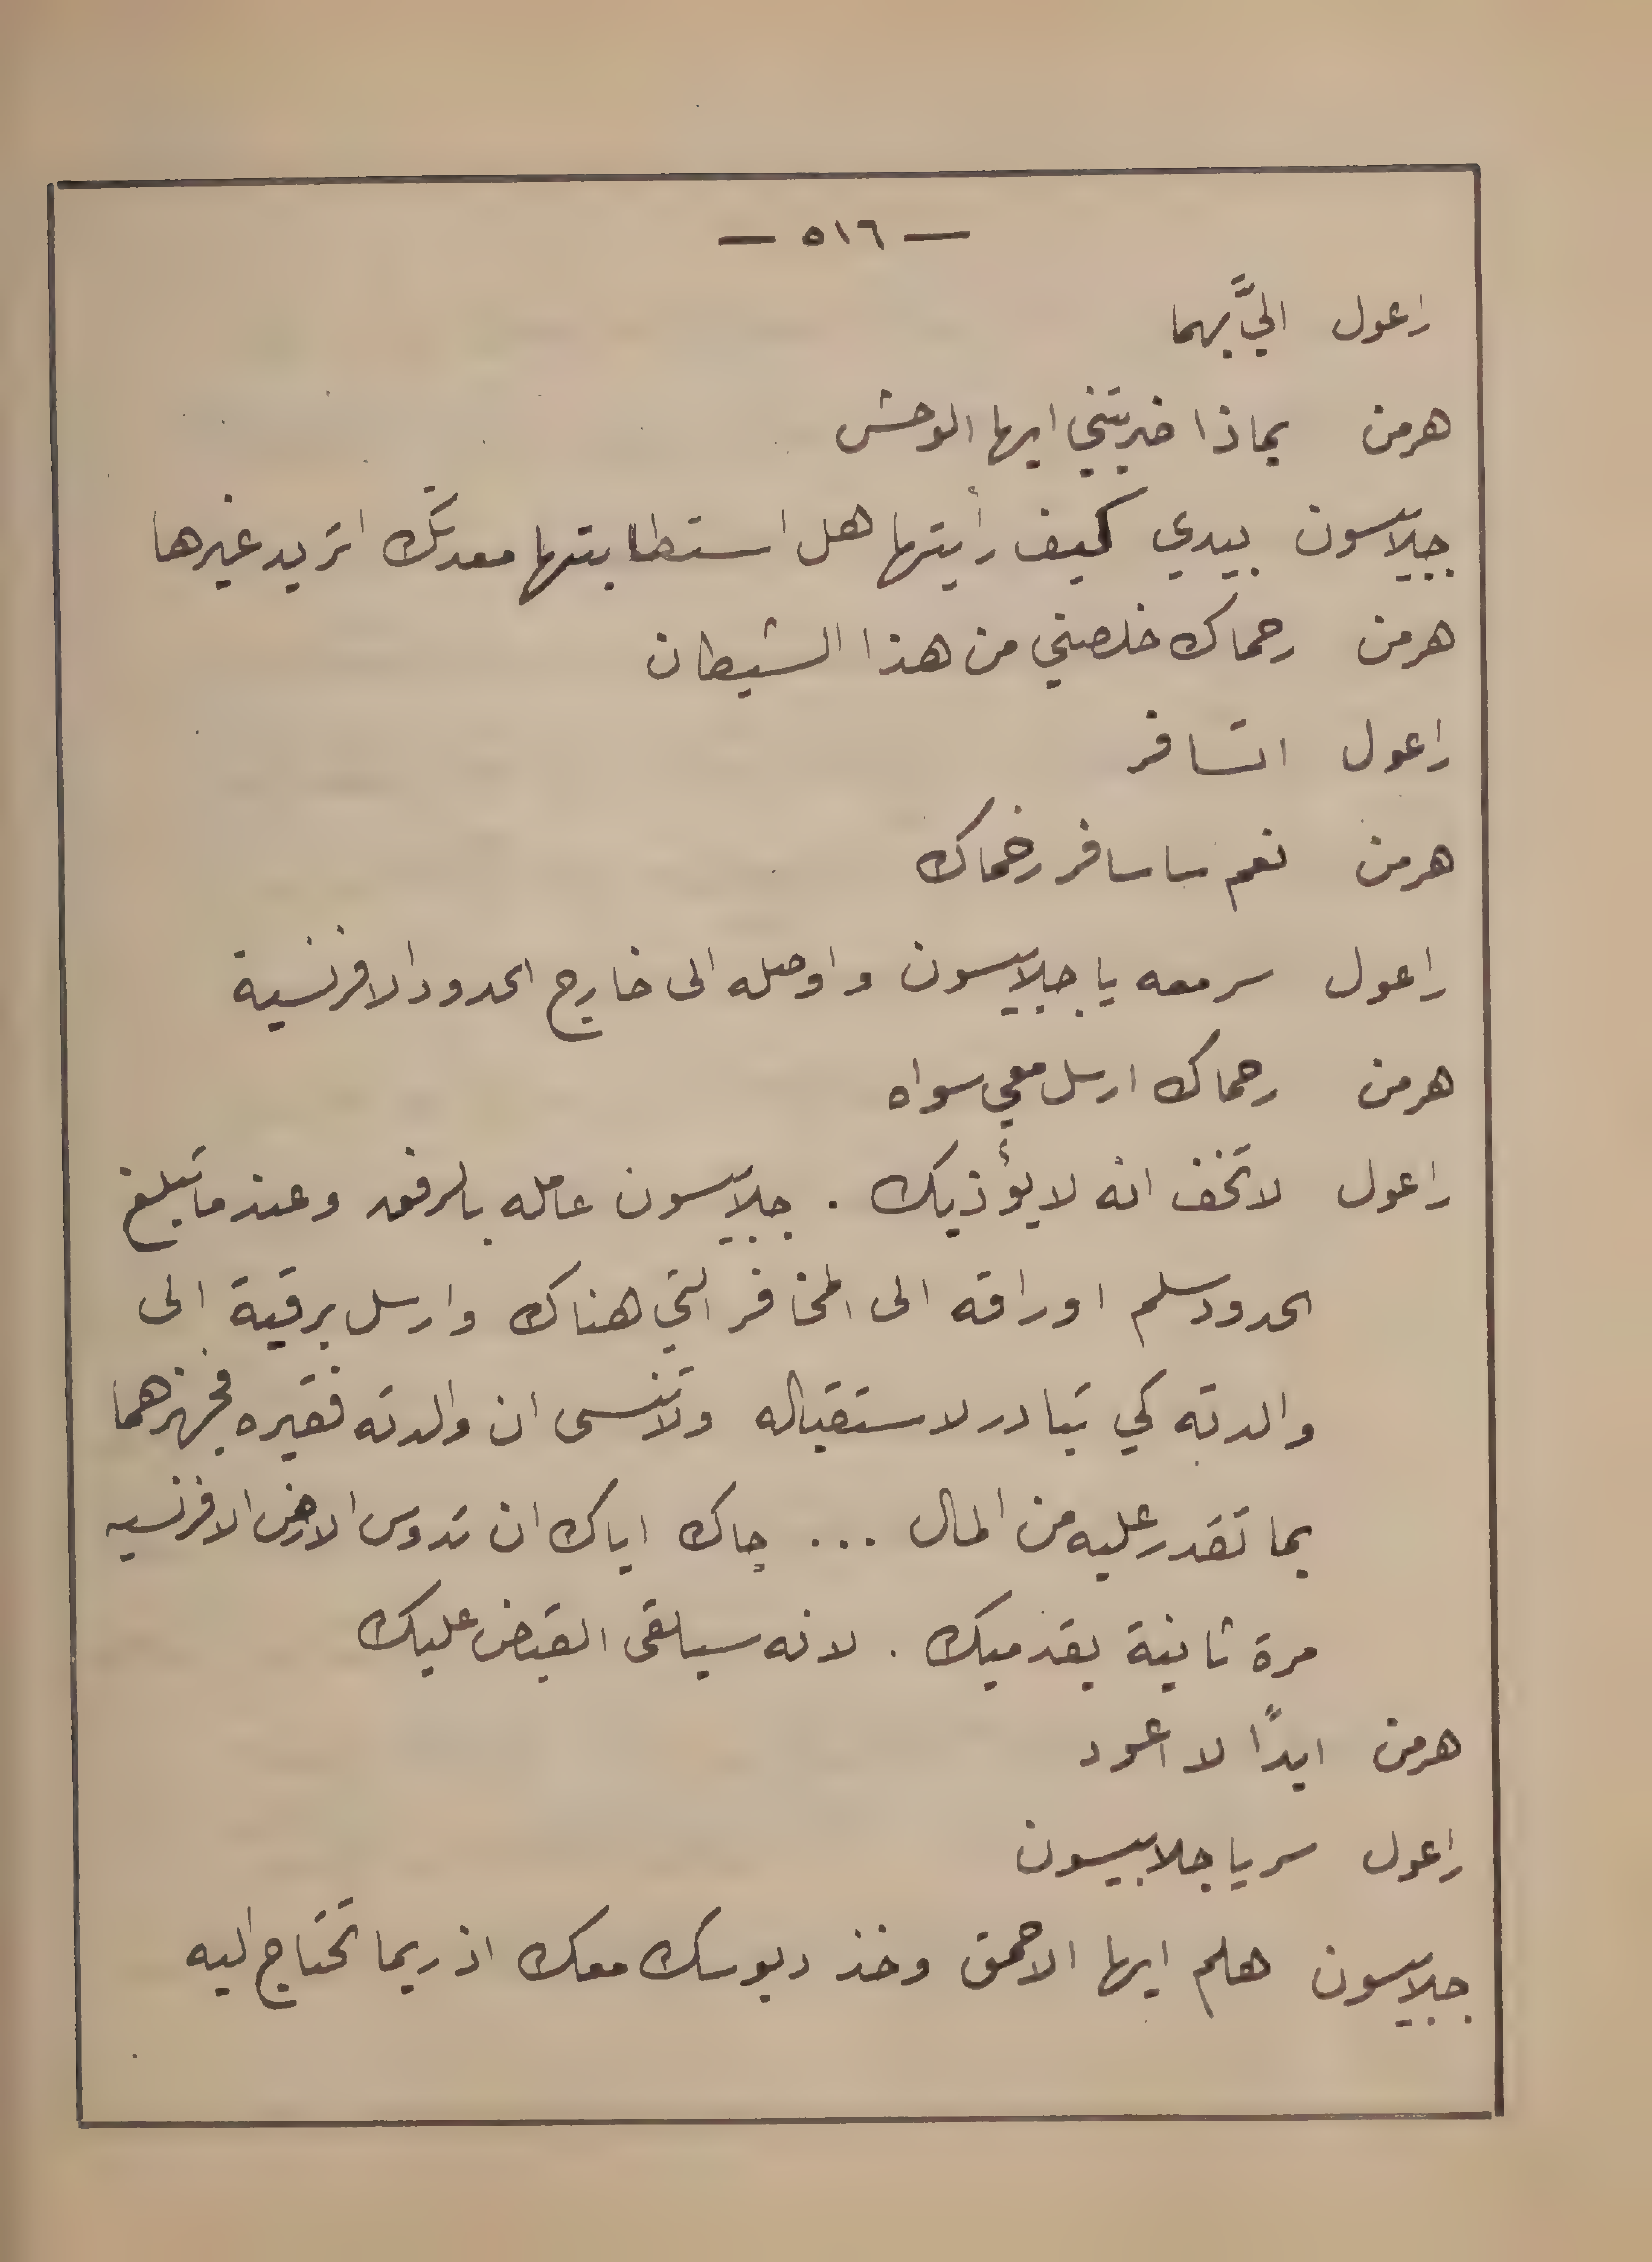 — ٥١٦ —
راعول اليَّ بهما
هرمن بماذا ضربتني ايها الوحش
جلابيسون بيدي كيف رأيتها هل استطابتها معدتك اتريد غيرها
هرمن رحماك خلصني من هذا الشيطان
راعول اتسافر
هرمن نعم ساسافر رحماك
راعول سر معه يا جلابيسون واوصله الى خارج الحدود الافرنسية
هرمن رحماك ارسل معي سواه
راعول لا تخف انه لا يؤذيك . جلابيسون عامله بالرفق وعندما تبلغ
الحدود سلم اوراقه الى المخافر التي هناك وارسل برقية الى
والدته كي تبادر لاستقباله ولا تنسى ان والدته فقيره فجهزهما
بما تقدر عليه من المال ... جاك اياك ان تدوس الارض الافرنسيه
مرة ثانية بقدميك . لانه سيلقى القبض عليك
هرمن ابدًا لا اعود
راعول سر يا جلابيسون
جلابيسون هلم ايها الاحمق وخذ دبوسك معك اذ ربما تحتاج اليه